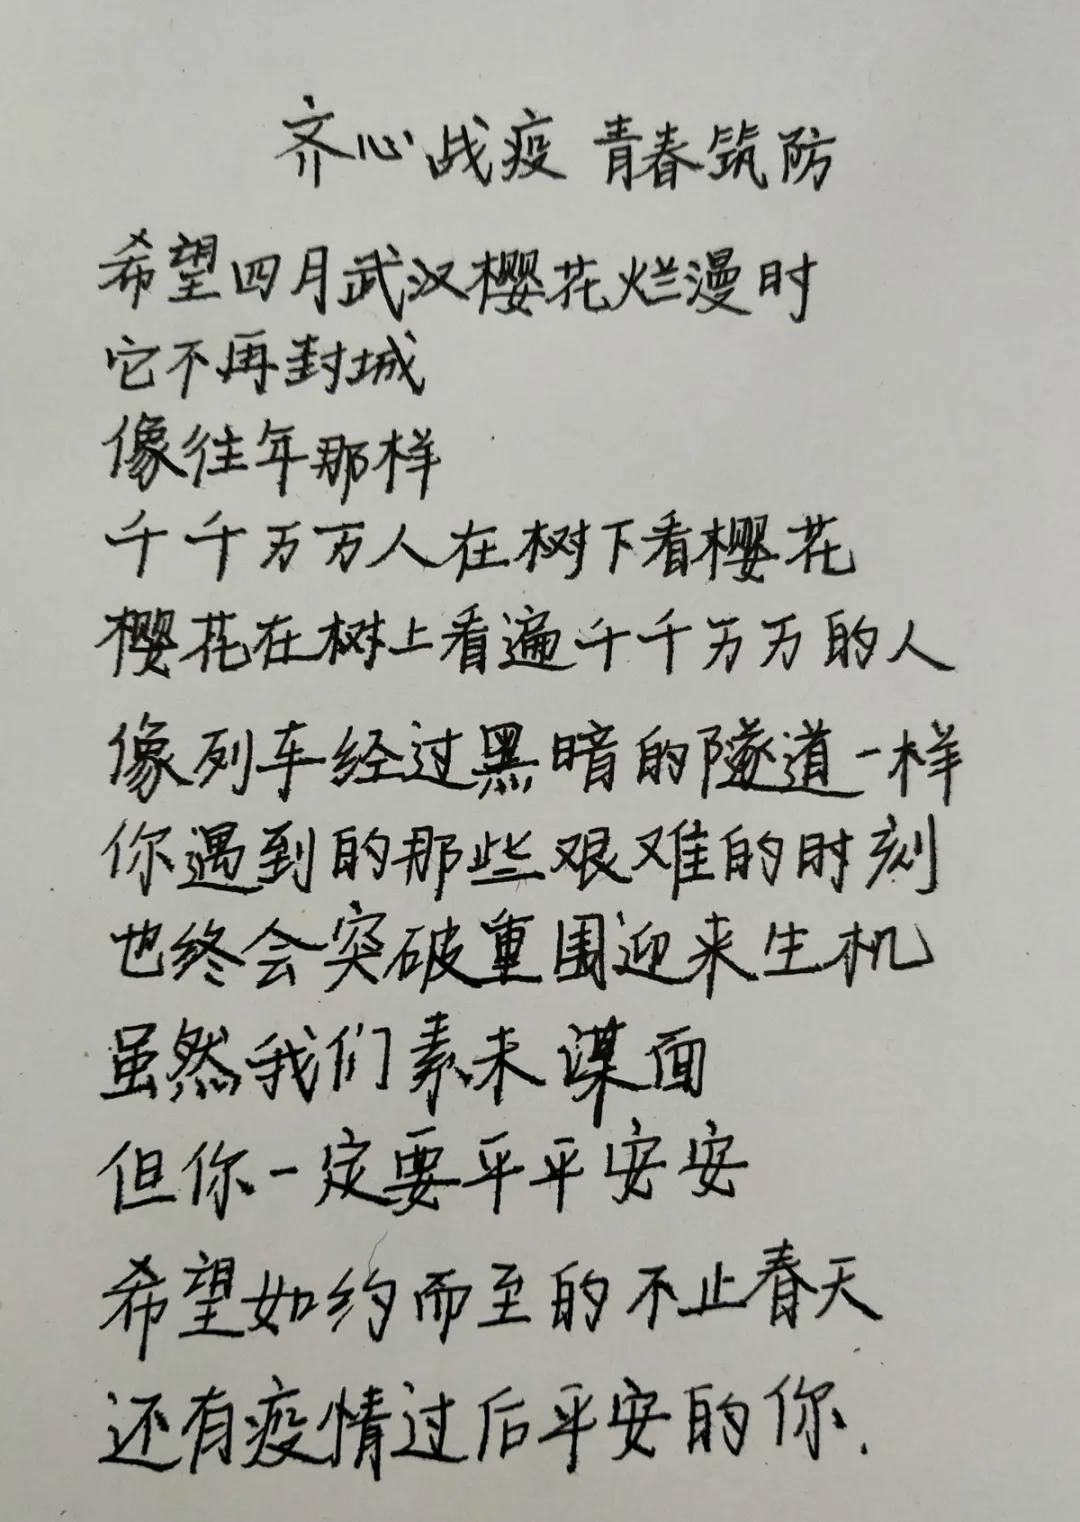 齐心战疫 青春筑防
希望四月武汉樱花烂漫时
它不再封城
像往年那样
千千万万人在树下看樱花
樱花在树上看遍千千万万的人
像列车经过黑暗的隧道一样
你遇到的那些艰难的时刻
也终会突破重围迎来生机
虽然我们素未谋面
但你一定要平平安安
希望如约而至的不止春天
还有疫情过后平安的你.